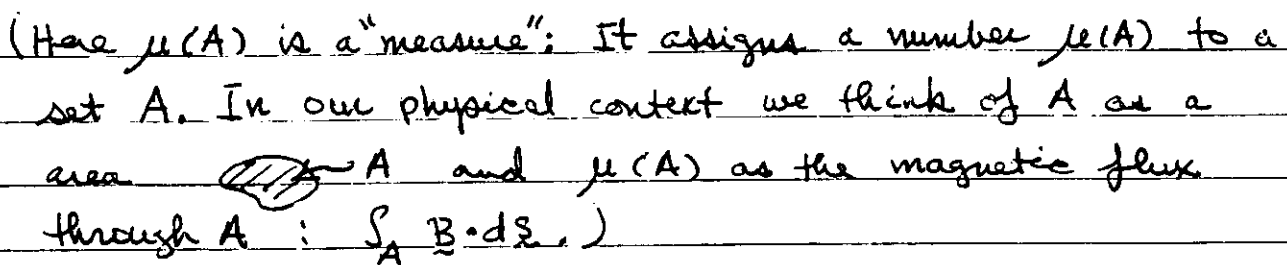 (Here μ(A) is a "measure": It assigns a number μ(A) to a
set A. In our physical context we think of A as a
area A and μ(A) as the magnetic flux
through A : ∫_A B·dS.)